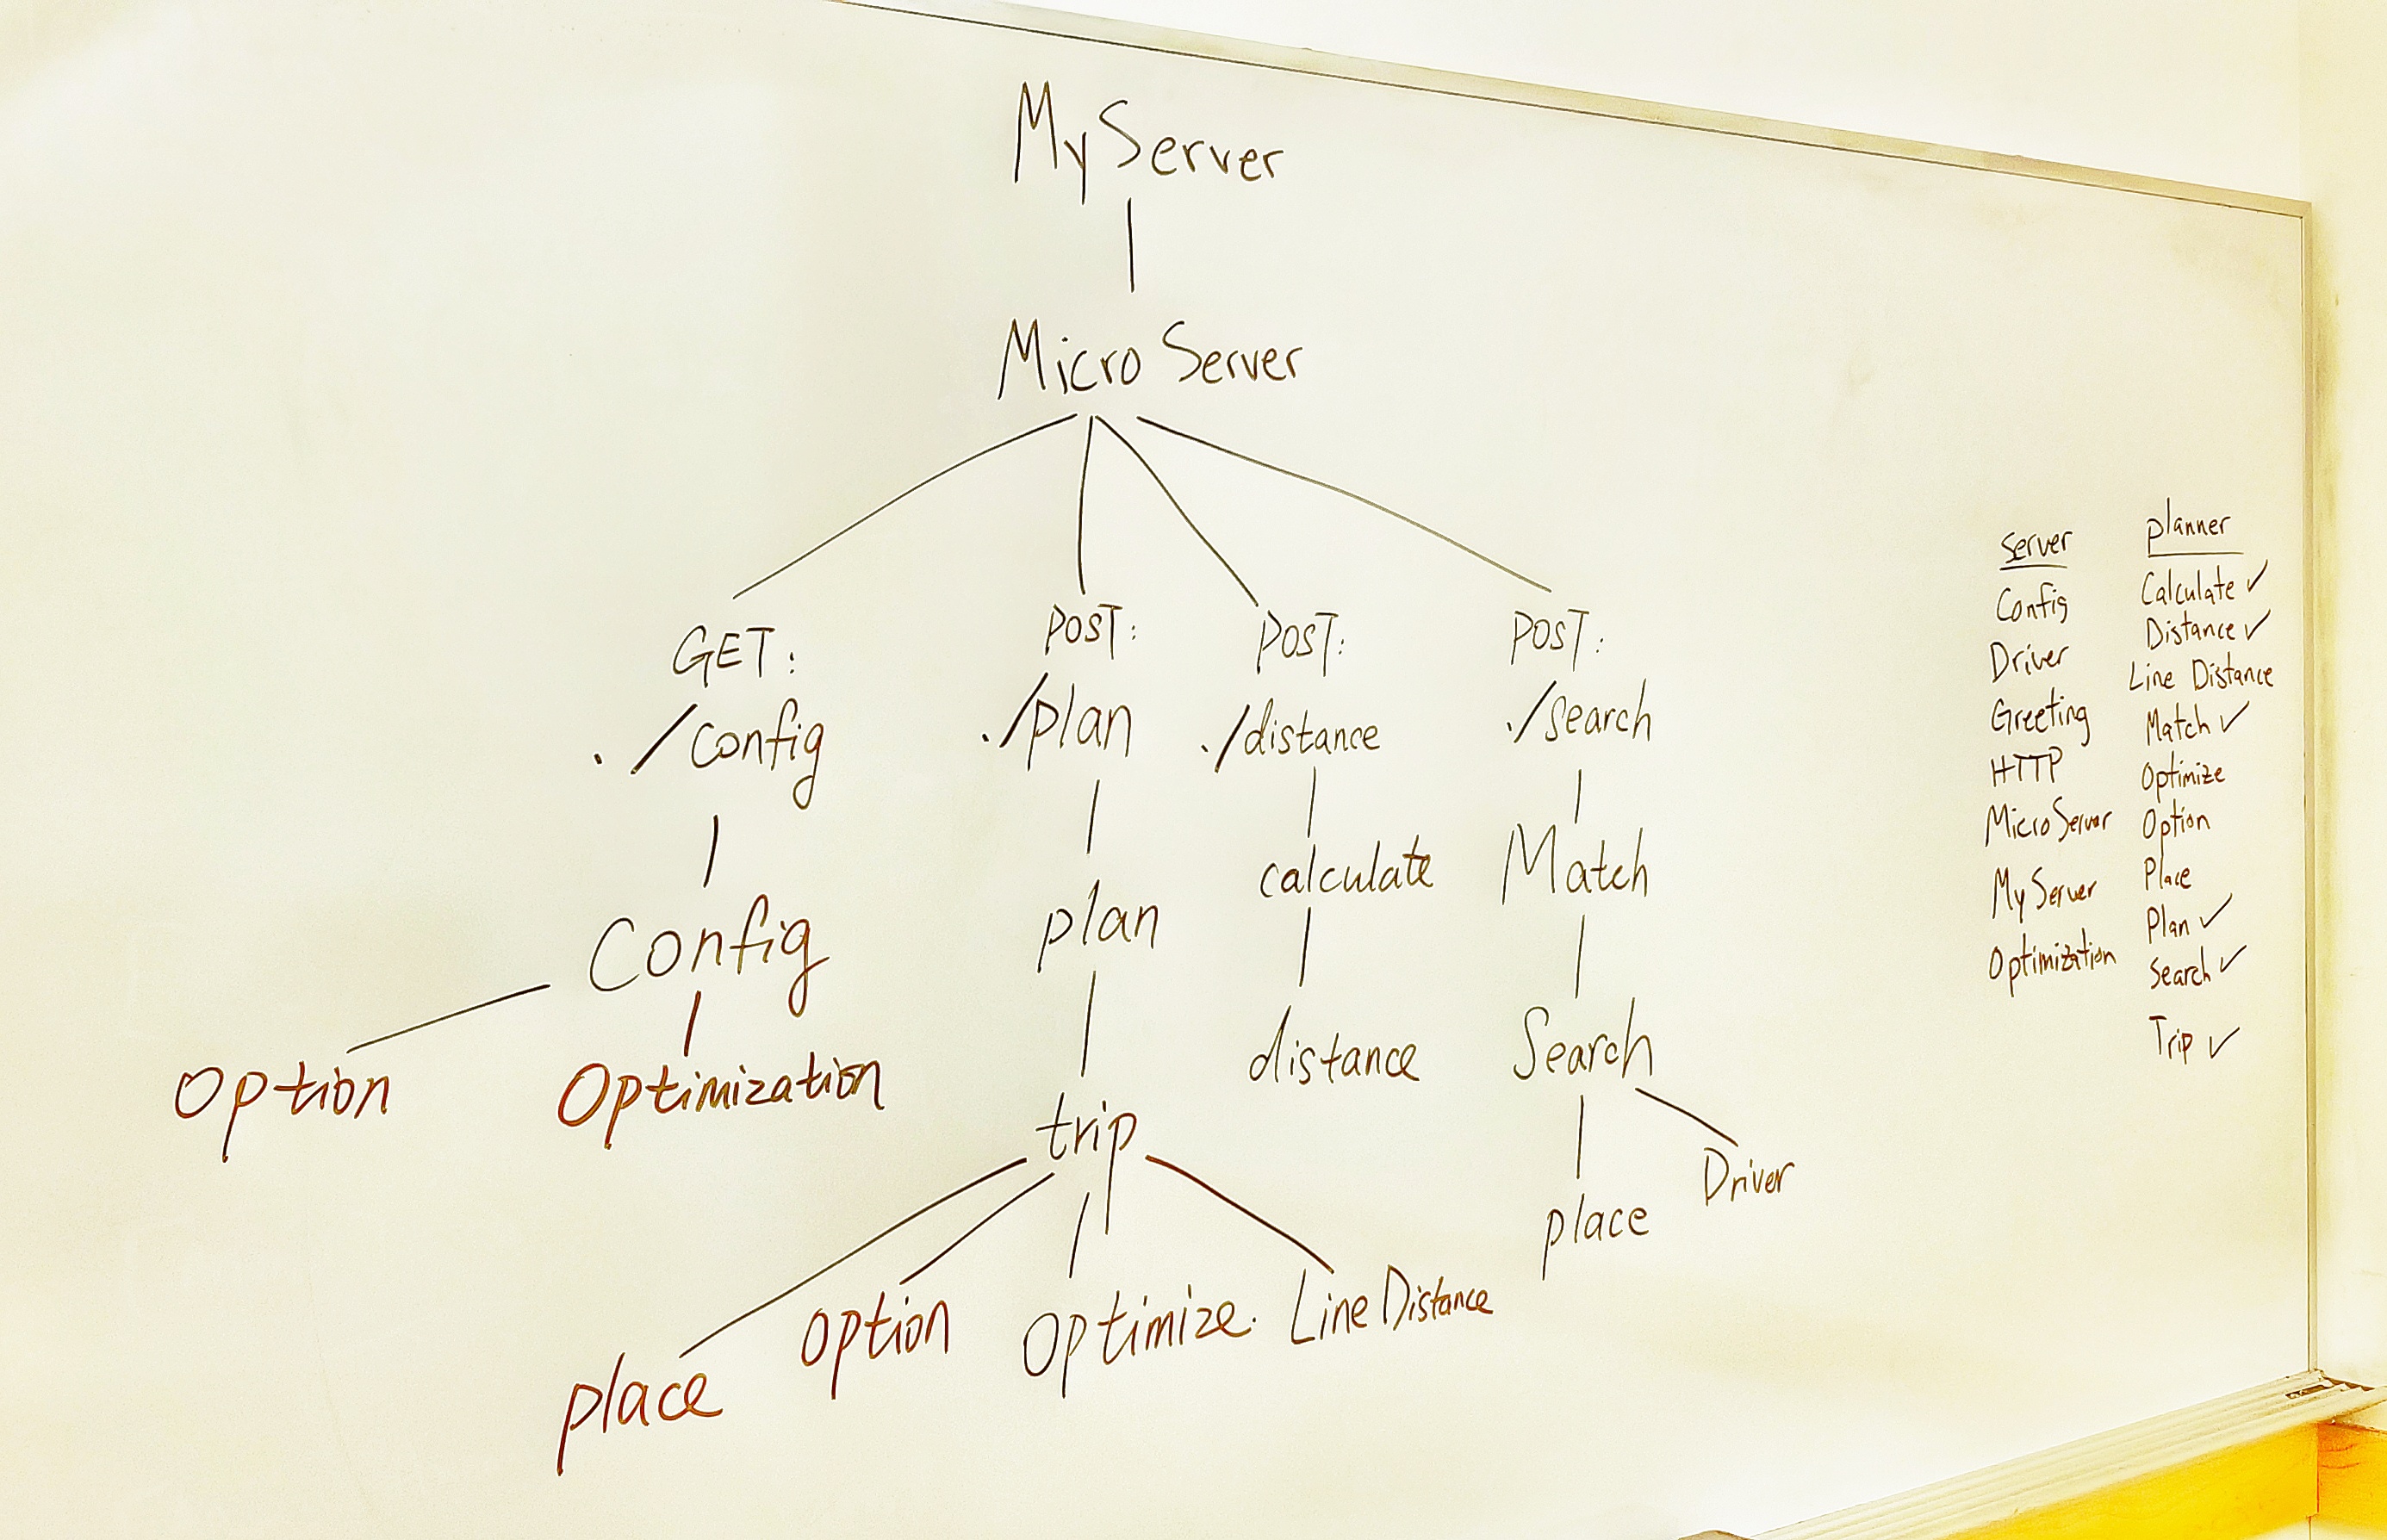 MyServer
Micro Server
GET:
./config
Config
Option
Optimization
POST:
./plan
plan
trip
place
option
optimize.
Line Distance
POST:
./distance
calculate
distance
POST:
./search
Match
Search
place
Driver
server
Config
Driver
Greeting
HTTP
MicroServer
MyServer
Optimization
planner
Calculate ✓
Distance ✓
Line Distance
Match ✓
Optimize
Option
Place
Plan ✓
Search ✓
Trip ✓